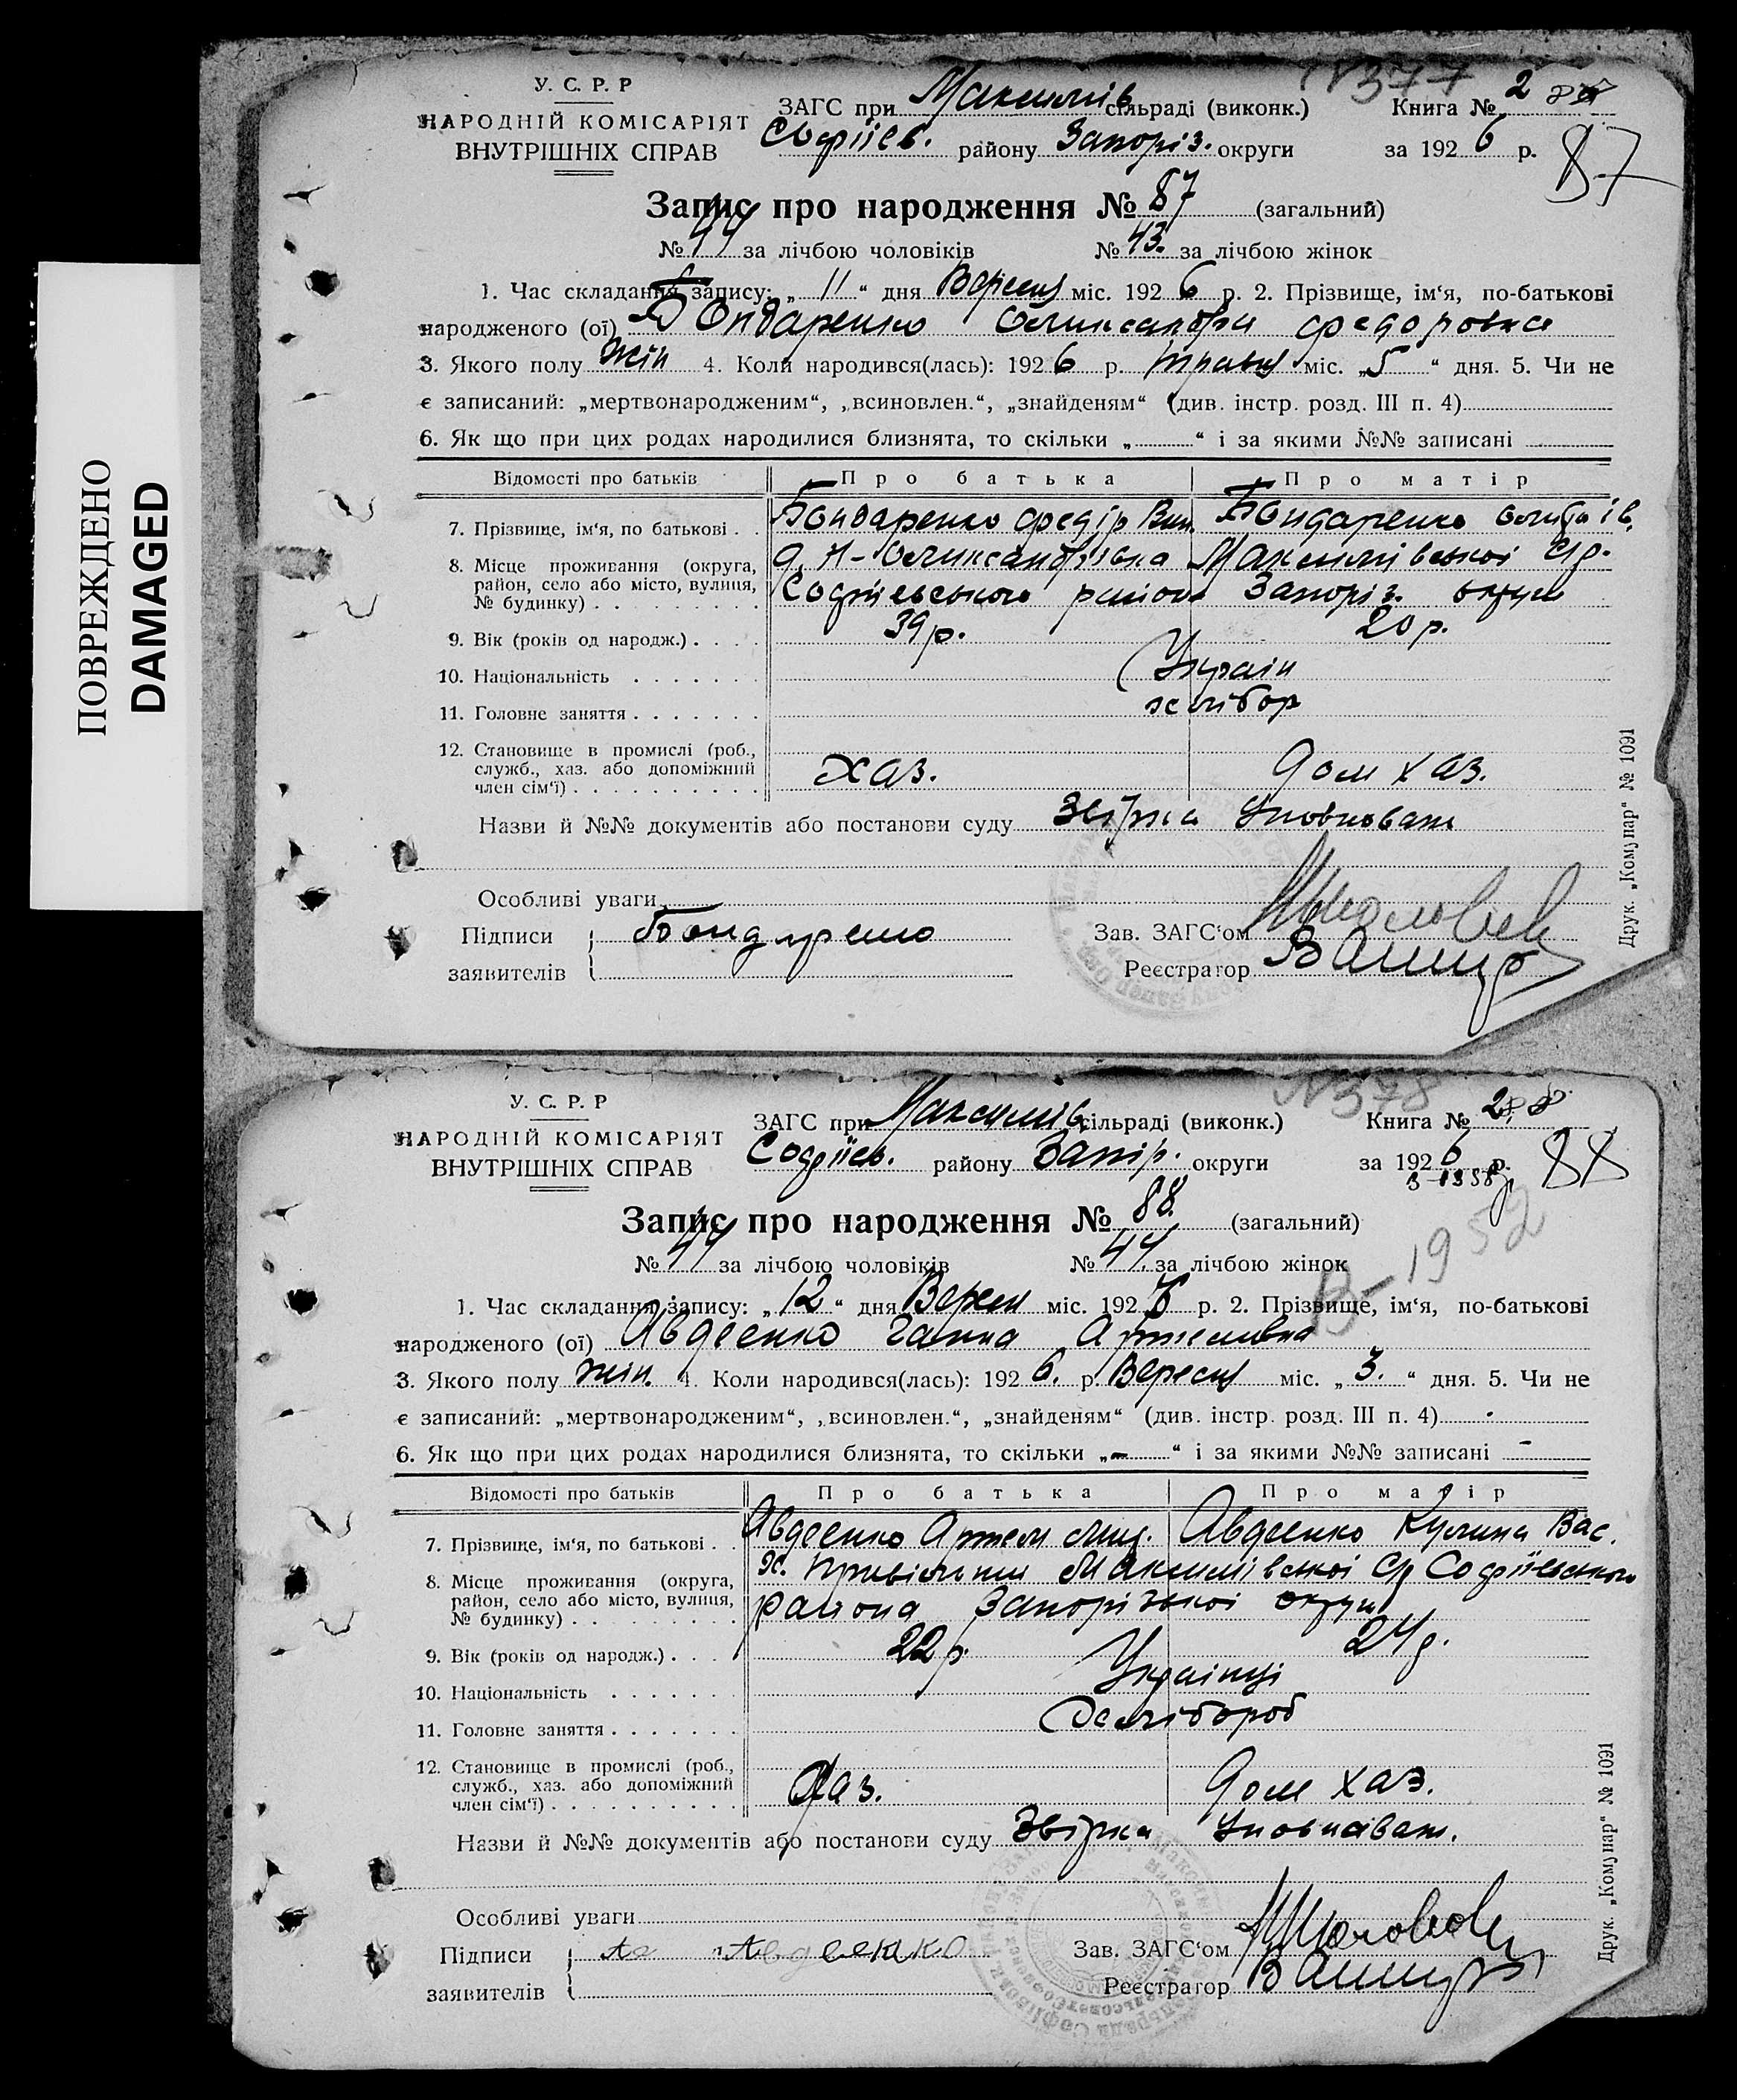 ПОВРЕЖДЕНО
DAMAGED
У. С. Р. Р
НАРОДНІЙ КОМІСАРІЯТ
ВНУТРІШНІХ СПРАВ
N377
ЗАГС при Максимів сільраді (виконк.) Книга № 2
Софіїев. району Запоріз. округи за 1926 р. 87
Запис про народження № 87 (загальний)
№ 44 за лічбою чоловіків № 43. за лічбою жінок
1. Час складання запису: „11“ дня Вересня міс. 1926 р. 2. Прізвище, ім‘я, по-батькові
народженого (ої) Бондаренко Олександра Федоровна
3. Якого полу жін 4. Коли народився(лась): 1926 р. травня міс. „5“ дня. 5. Чи не
є записаний: „мертвонародженим“, „всиновлен.“, „знайденям“ (див. інстр. розд. III п. 4)
6. Як що при цих родах народилися близнята, то скільки „ “ і за якими №№ записані
Відомості про батьків Про батька Про матір
7. Прізвище, ім‘я, по батькові . . Бондаренко Федір Бондаренко
8. Місце проживання (округа, район, село або місто, вулиця, № будинку) . . Н-Олександрівка Максимівської с/р.
Софіївського району Запоріз. округи
9. Вік (років од народж.) . . . . 39 р. 20 р.
10. Національність . . . . . . . Україн
11. Головне заняття . . . . . . . хлібор
12. Становище в промислі (роб., служб., хаз. або допоміжний член сім‘ї) . . . . . . . . . . Хаз. дом хаз.
Назви й №№ документів або постанови суду Звірка
Особливі уваги
Підписи заявителів Бондаренко
Зав. ЗАГС‘ом
Реєстратор
Друк. „Комунар“ № 1091
У. С. Р. Р
НАРОДНІЙ КОМІСАРІЯТ
ВНУТРІШНІХ СПРАВ
N378
ЗАГС при Максимів. сільраді (виконк.) Книга № 2
Софіїев. району Запір. округи за 1926 р. 88
Запис про народження № 88. (загальний)
В-1952
№ 44 за лічбою чоловіків № 44. за лічбою жінок
1. Час складання запису: „12“ дня Вересн міс. 1926 р. 2. Прізвище, ім‘я, по-батькові
народженого (ої) Авдеенко Ганна Артемівна
3. Якого полу жін. 4. Коли народився(лась): 1926. р. Вересня міс. „3.“ дня. 5. Чи не
є записаний: „мертвонародженим“, „всиновлен.“, „знайденям“ (див. інстр. розд. III п. 4)
6. Як що при цих родах народилися близнята, то скільки „-“ і за якими №№ записані -
Відомості про батьків Про батька Про матір
7. Прізвище, ім‘я, по батькові . . Авдеенко Артем Авдеенко Кулина Вас.
8. Місце проживання (округа, район, село або місто, вулиця, № будинку) . . х. Максимівської с/р Софіївського
района Запорізької округи
9. Вік (років од народж.) . . . 22 р. 24 р.
10. Національність . . . . . . . Українці
11. Головне заняття . . . . . . . Хлібороб
12. Становище в промислі (роб., служб., хаз. або допоміжний член сім‘ї) . . . . . . . . . . Хаз. дом хаз.
Назви й №№ документів або постанови суду Звірка
Особливі уваги
Підписи заявителів Авдеенко
Зав. ЗАГС‘ом
Реєстратор
Друк. „Комунар“ № 1091